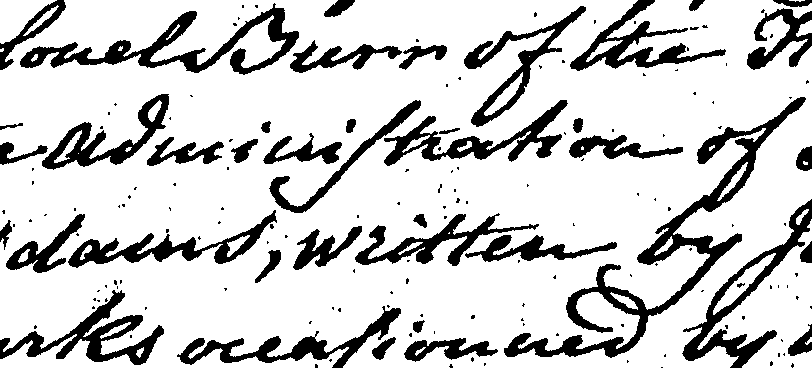 lonel Burr of the
administration of
dams, written by
arks occasioned by